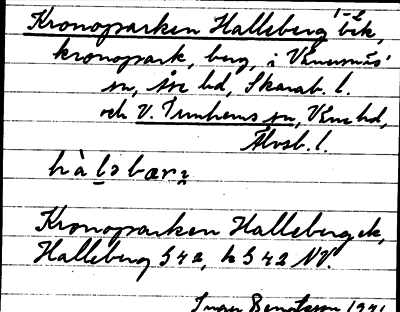 Kronoparken Halleberg ek,
kronopark, berg, i Vänersnäs
sn, Åse hd, Skarab. l.
och V. Tunhems sn, Väne hd,
Älvsb. l.
hàləbær
Kronoparken Halleberg ek,
Halleberg 5 4 2, h 5 4 2 NV.
Bengtsson 19